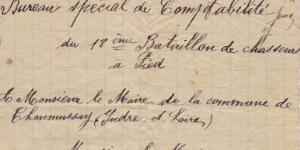 Bureau spécial de Comptabilité
du 18 ème Bataillon de chasseurs
à Pied
à Monsieur le Maire de la commune de
Chaumussay (Indre et Loire,)
Monsieur le